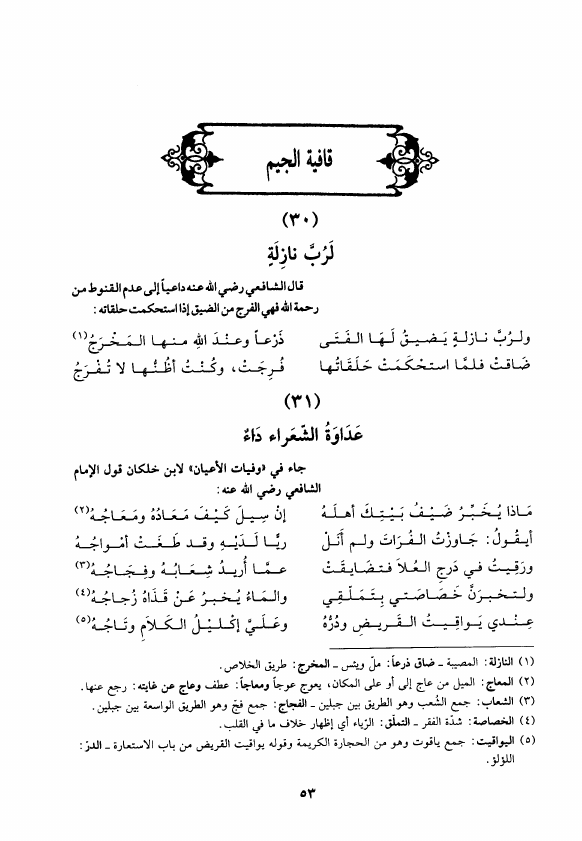 قافية الجيم
(٣٠)
لَرُبَّ نازِلَةٍ
قال الشافعي رضي الله عنه داعياً إلى عدم القنوط من
رحمة الله فهي الفرج من الضيق إذا استحكمت حلقاته :
ولرُبَّ نازلةٍ يَضيقُ لَهَا الفَتَى ذَرْعاً وعنْدَ اللهِ منها المَخْرَجُ(١)
ضَاقتْ فلمَّا استحكمَتْ حَلَقَاتُها فُرِجَتْ، وكُنْتُ أظُنُّها لا تُفْرَجُ
(٣١)
عَدَاوَةُ الشّعَراء دَاءٌ
جاء في «وفيات الأعيان» لابن خلكان قول الإمام
الشافعي رضي الله عنه :
مَاذا يُخَبِّرُ ضَيْفُ بَيْتِكَ أهلَهُ إنْ سِيلَ كَيْفَ مَعَادُهُ ومَعَاجُهُ(٢)
أيقُولُ: جَاوزْتُ الفُرَاتَ ولم أنَلْ ريًّا لَدَيْهِ وقد طَغَتْ أمْواجُهُ
ورَقِيتُ في دَرجِ العُلاَ فتضَايقَتْ عمَّا أُريدُ شِعَابُهُ وفِجَاجُهُ(٣)
ولتخبرَنَّ خَصَاصَتي بِتَملُّقي والمَاءُ يُخبرُ عَنْ قَذَاهُ زُجاجُهُ(٤)
عِنْدي يَواقيتُ القَريضِ ودُرُّهُ وعَلَيَّ إكْليلُ الكَلاَمِ وتَاجُهُ(٥)
(١) النازلة: المصيبة ـ ضاق ذرعاً: ملّ ويئس ـ المخرج: طريق الخلاص.
(٢) المعاج: الميل من عاج إلى أو على المكان، يعوج عوجاً ومعاجاً: عطف وعاج عن غايته: رجع عنها.
(٣) الشعاب: جمع الشُعب وهو الطريق بين جبلين ـ الفجاج: جمع فجّ وهو الطريق الواسعة بين جبلين.
(٤) الخصاصة: شدّة الفقر ـ التملّق: الرّياء أي إظهار خلاف ما في القلب.
(٥) اليواقيت: جمع ياقوت وهو من الحجارة الكريمة وقوله يواقيت القريض من باب الاستعارة ـ الدرّ:
اللؤلؤ.
٥٣